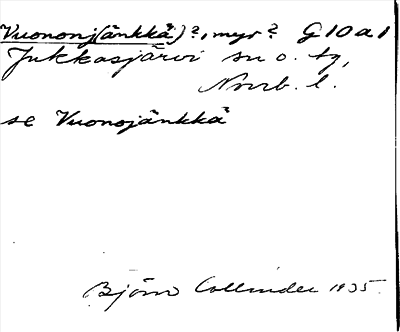 Vuononj(änkkä)?, myr? G 10 a 1
Jukkasjärvi sn o. tg,
Norrb. l.
se Vuonojänkkä
Björn Collinder 1935.